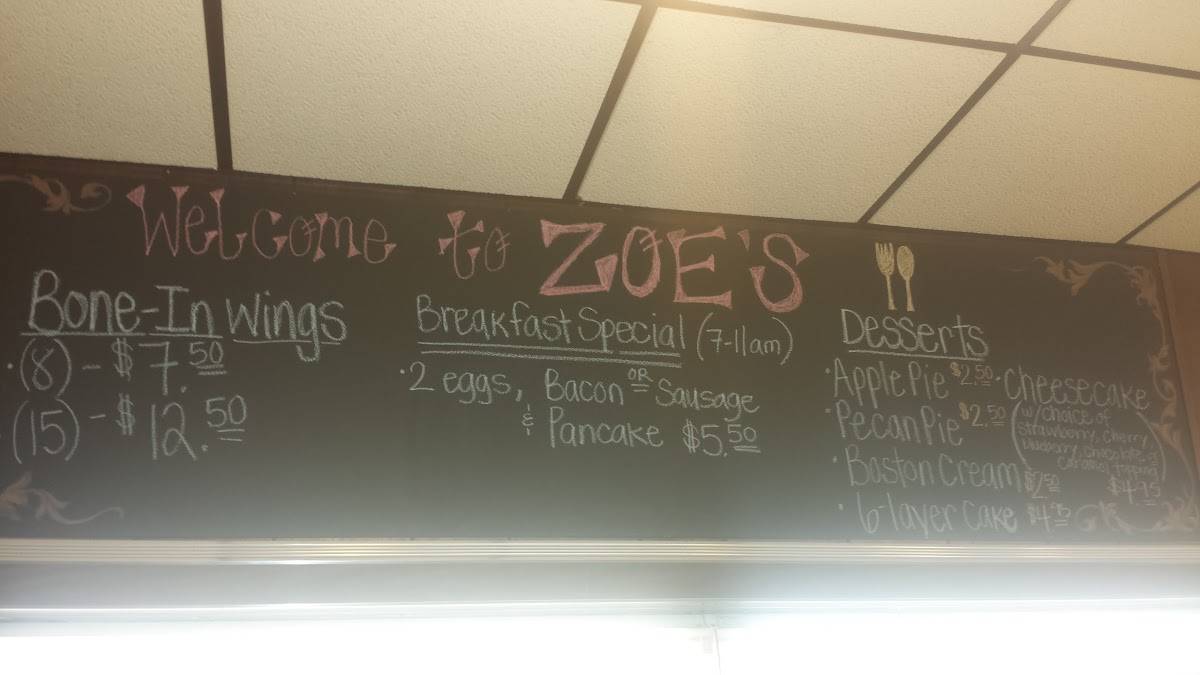 Welcome to ZOE'S
Bone-In Wings
·(8) - $7.50
·(15) - $12.50
Breakfast Special (7-11am)
·2 eggs, Bacon OR Sausage
& Pancake $5.50
Desserts
·Apple Pie $2.50
·Pecan Pie $2.50
·Boston Cream $2.50
·6-layer cake $4.95
·Cheesecake
(w/choice of
strawberry, cherry,
blueberry, chocolate,
caramel topping)
$4.95